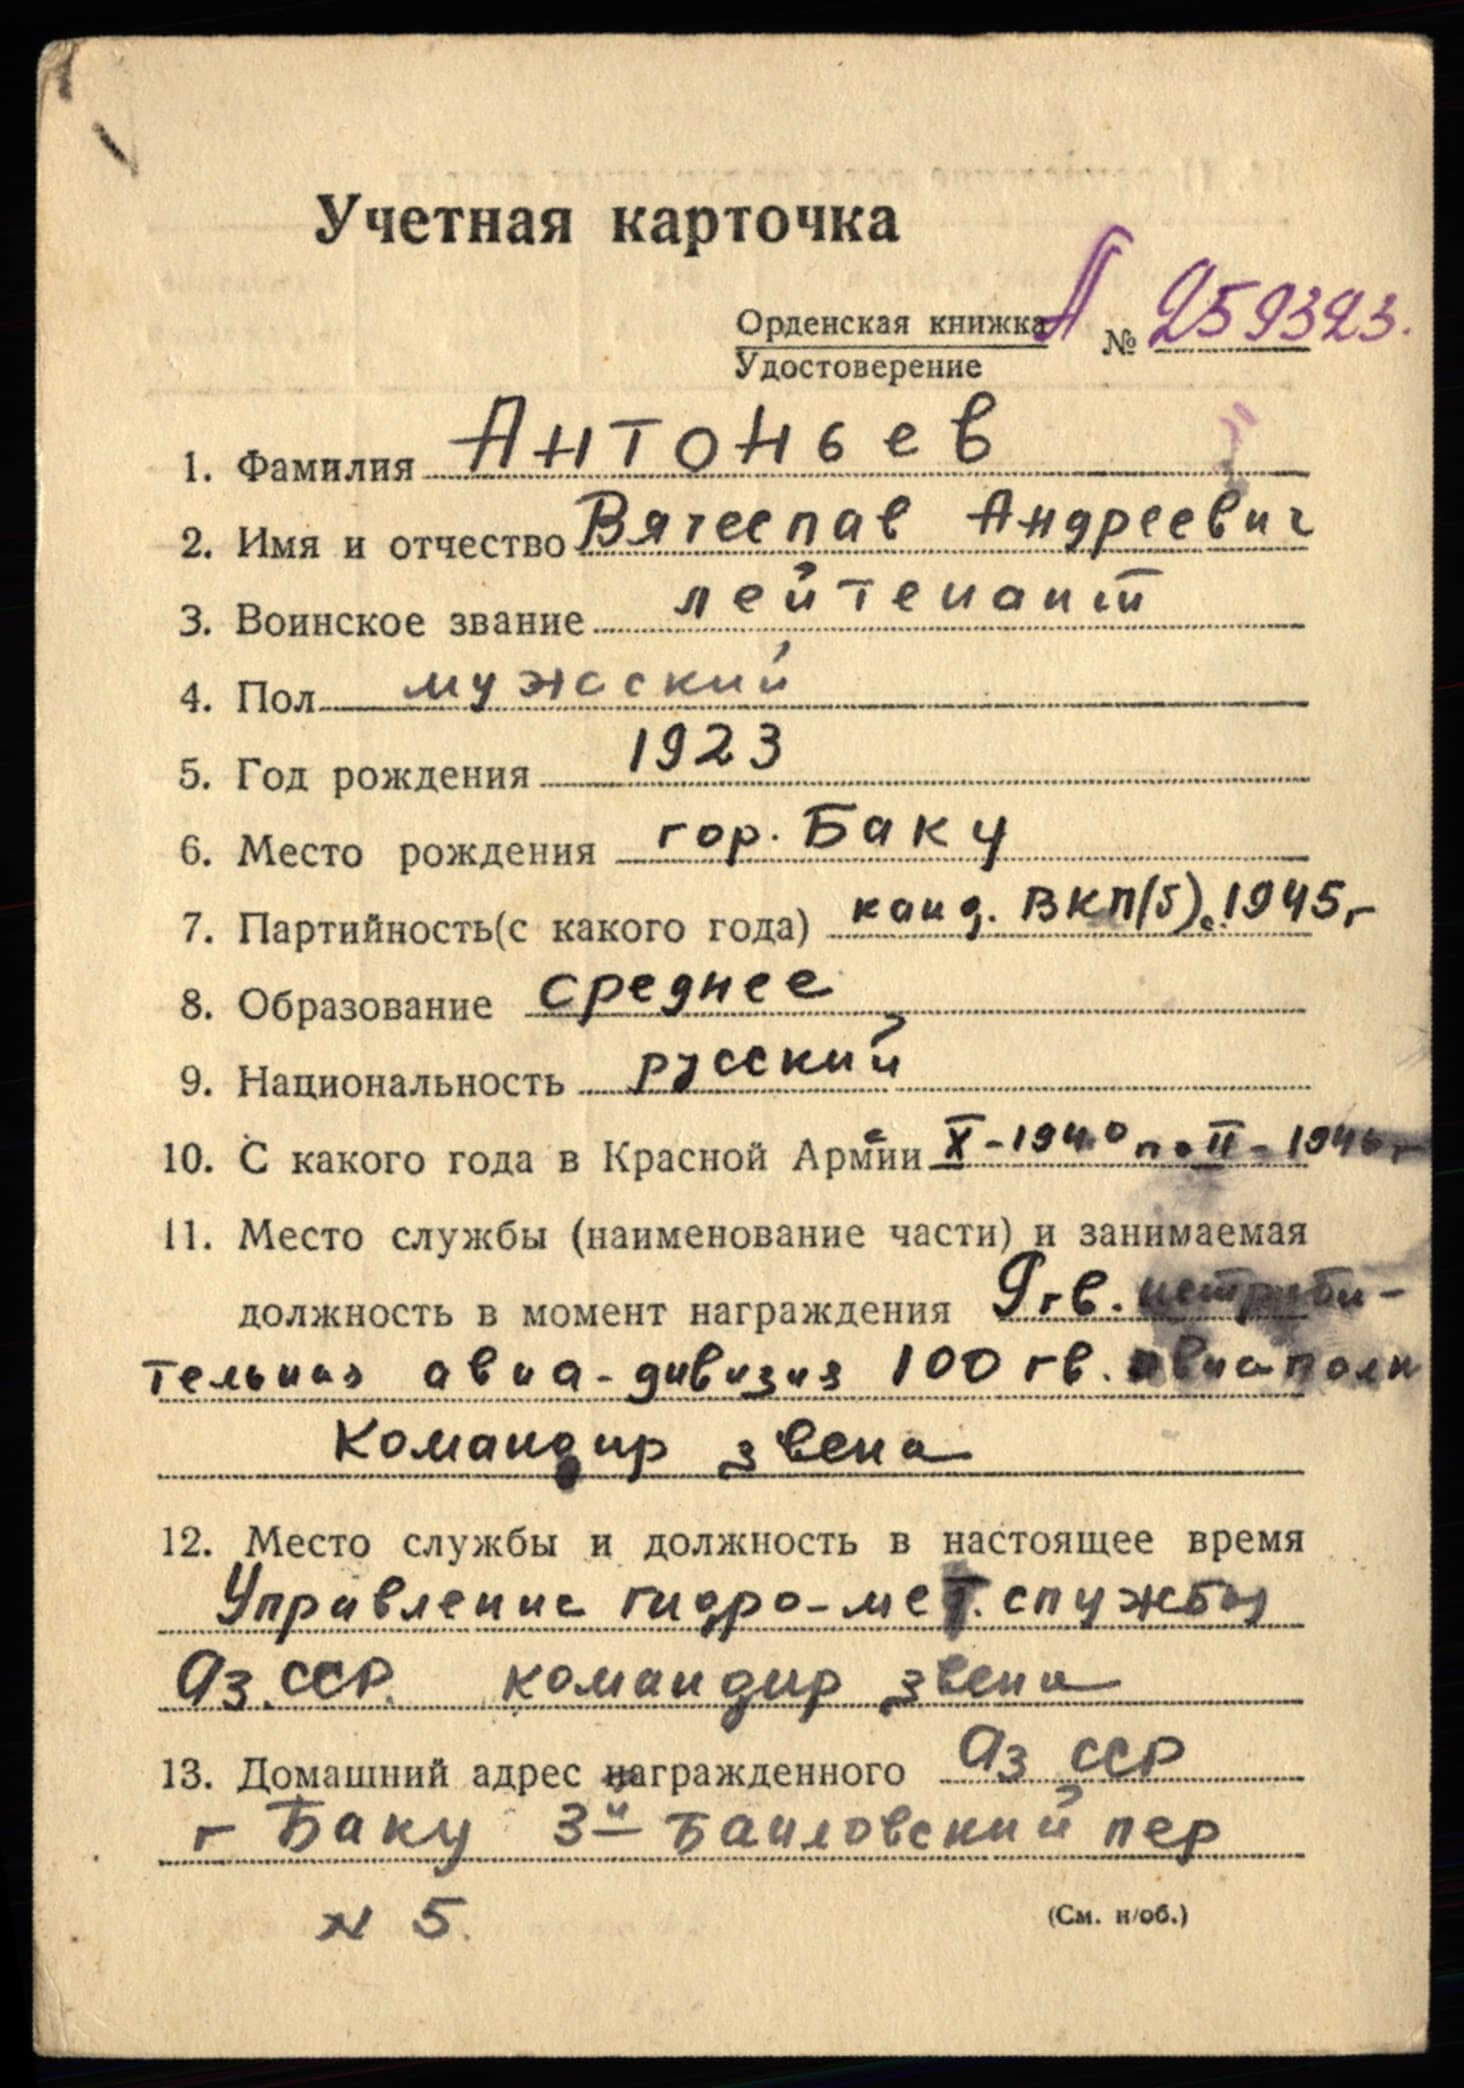 Учетная карточка
Орденская книжка А № 259323.
Удостоверение
1. Фамилия Антоньев
2. Имя и отчество Вячеслав Андреевич
3. Воинское звание лейтенант
4. Пол мужской
5. Год рождения 1923
6. Место рождения гор. Баку
7. Партийность(с какого года) канд. ВКП(б) с 1945 г
8. Образование среднее
9. Национальность русский
10. С какого года в Красной Армии X-1940 по II-1946 г
11. Место службы (наименование части) и занимаемая
должность в момент награждения 9 гв. истреби-
тельная авиа-дивизия 100 гв. авиаполк
Командир звена
12. Место службы и должность в настоящее время
Управление гидро-мет. службы
Аз.ССР. командир звена
13. Домашний адрес награжденного Аз ССР
г Баку 3й Баиловский пер
N 5.
(См. н/об.)